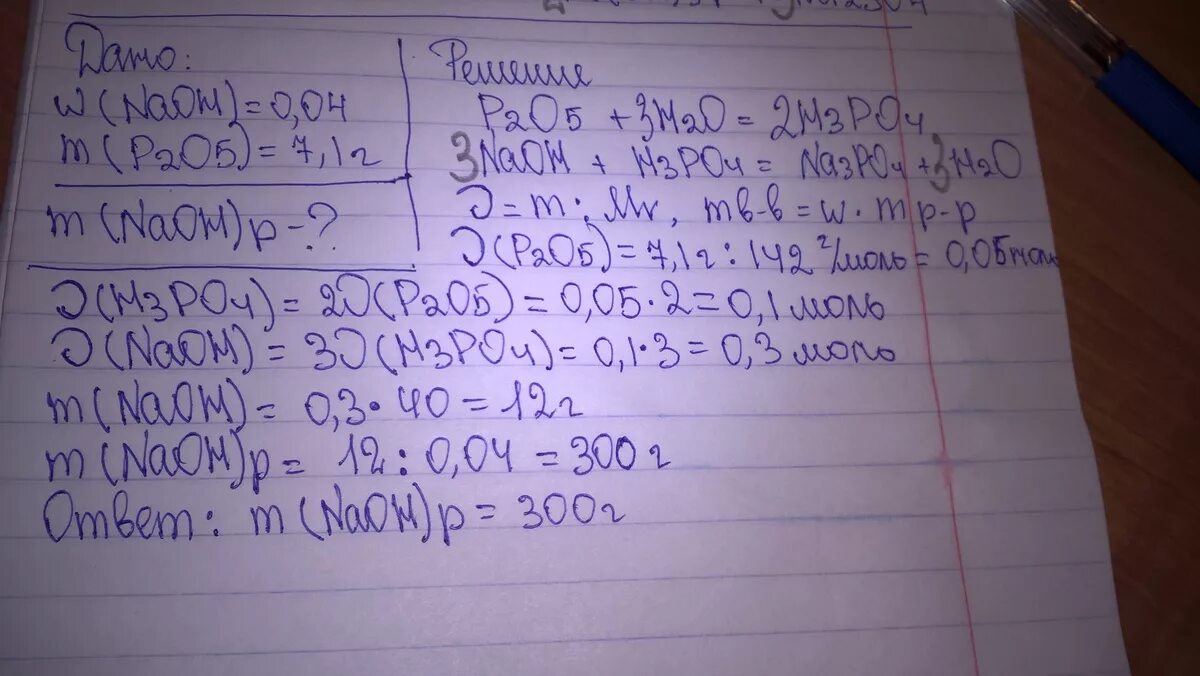 Дано:
w(NaOH)=0,04
m(P2O5)=7,1г
m(NaOH)р-?
Решение
P2O5 + 3H2O = 2H3PO4
3NaOH + H3PO4 = Na3PO4 + 3H2O
ν = m : Mr, m в-в = w · m р-р
ν(P2O5) = 7,1г : 142 г/моль = 0,05моль
ν(H3PO4) = 2ν(P2O5) = 0,05·2 = 0,1 моль
ν(NaOH) = 3ν(H3PO4) = 0,1·3 = 0,3 моль
m(NaOH) = 0,3·40 = 12г
m(NaOH)р = 12 : 0,04 = 300г
Ответ: m(NaOH)р = 300г